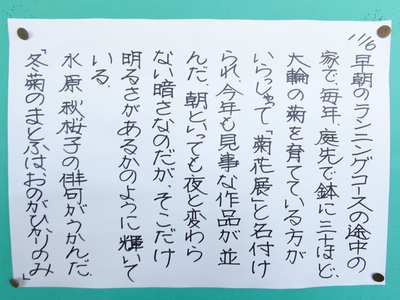 11/6
早朝のランニングコースの途中の
家で、毎年、庭先で鉢に三十ほど、
大輪の菊を育てている方が
いらっしゃって「菊花展」と名付け
られ、今年も見事な作品が並
んだ。朝といっても夜と変わら
ない暗さなのだが、そこだけ
明るさがあるかのように輝いて
いる。
水原秋桜子の俳句がうかんだ。
「冬菊のまとふはおのがひかりのみ」